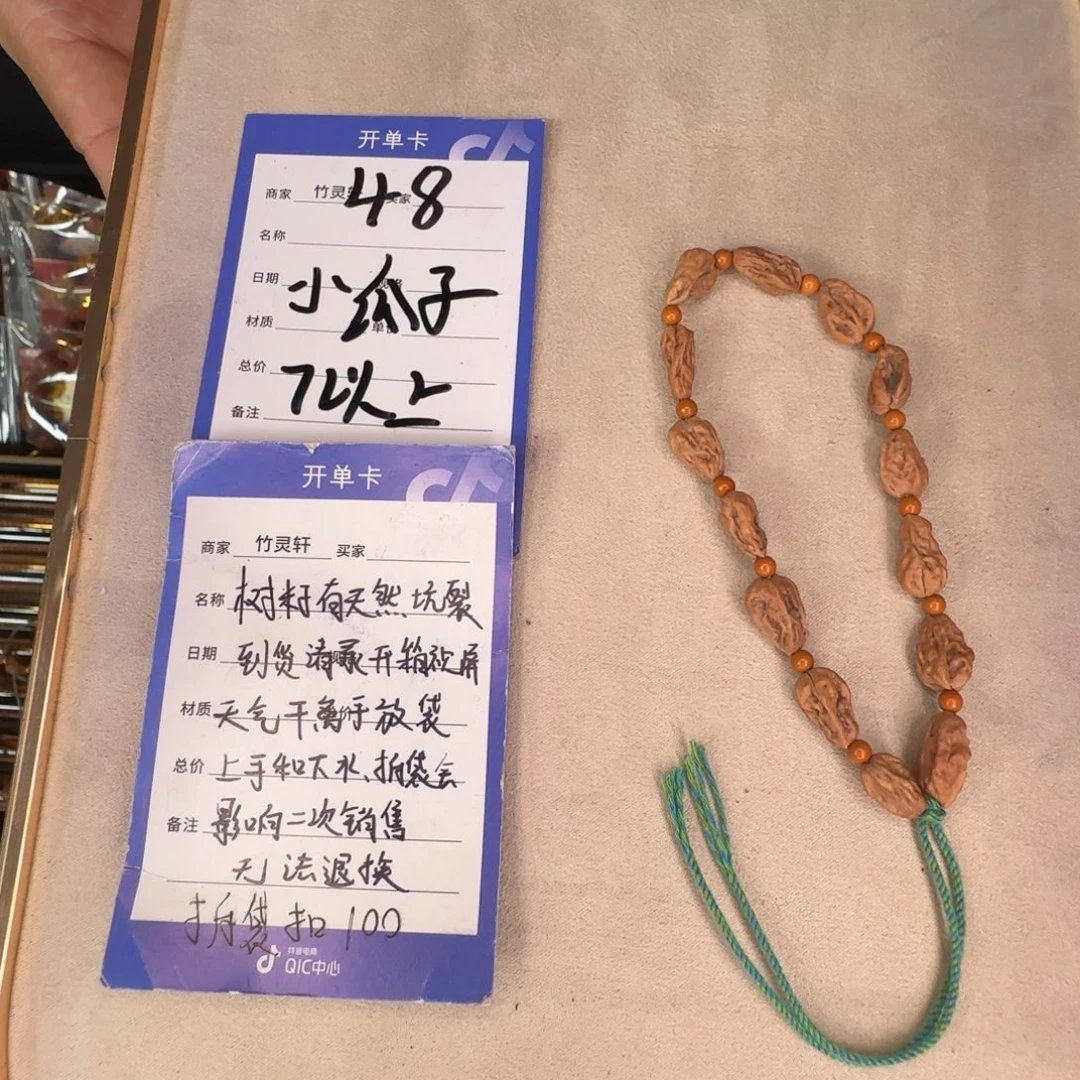 开单卡
商家 竹灵轩 买家
48
名称
日期
小瓜子
材质 单价
总价
7以上
备注
开单卡
商家 竹灵轩 买家
名称 树籽有天然坑裂
日期 到货请录开箱视屏
材质 天气干离手放袋
总价 上手和下水、拆袋会
备注 影响二次销售
无法退换
拆袋扣100
抖音电商
QIC中心